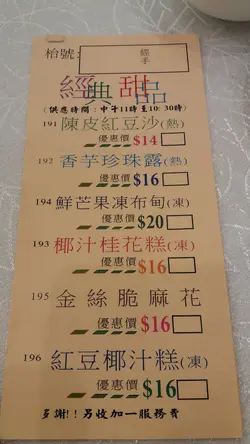 枱號:
經手
經典甜品
(供應時間:中午11時至10:30時)
191 陳皮紅豆沙(熱)
優惠價 $14
192 香芋珍珠露(熱)
優惠價 $16
194 鮮芒果凍布甸(凍)
優惠價 $20
193 椰汁桂花糕(凍)
優惠價 $16
195 金絲脆麻花
優惠價 $16
196 紅豆椰汁糕(凍)
優惠價 $16
多謝!! 另收加一服務費